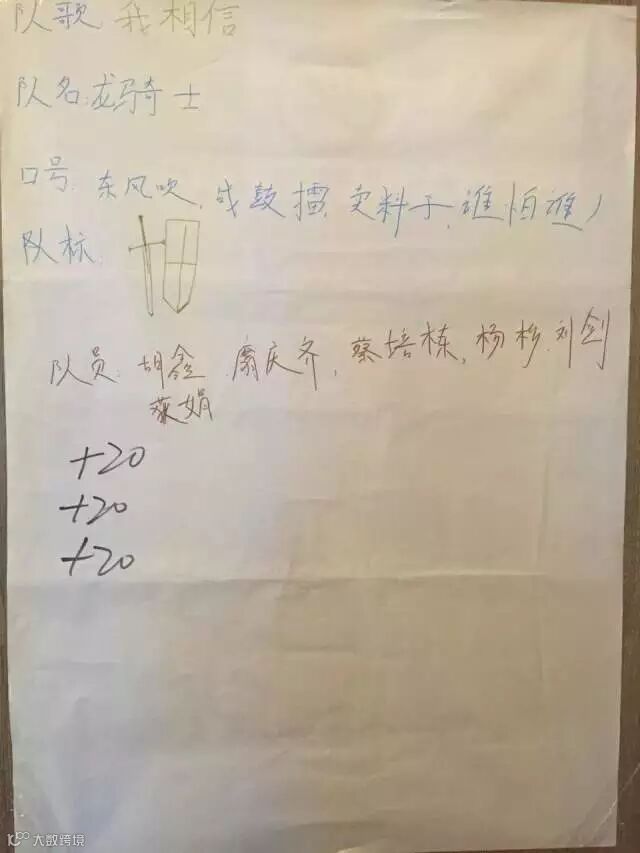 队歌:我相信
队名:龙骑士
口号:东风吹,战鼓擂,卖料子,谁怕谁!
队标:
队员:胡鑫 庆齐,蔡培栋,杨杉,刘剑
娟
+20
+20
+20
大数跨境